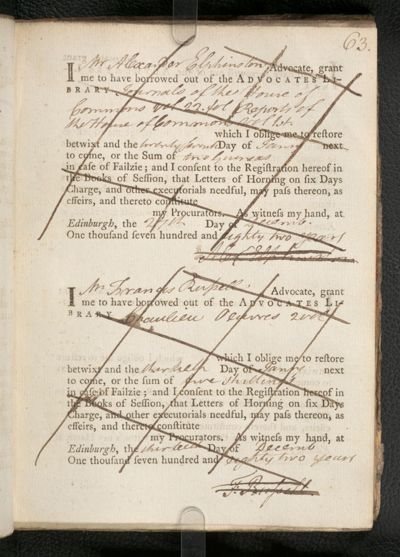 63.
I Mr Alexander Elphinston Advocate, grant
me to have borrowed out of the ADVOCATES LI-
BRARY Journals of the House of
Commons Vol 22. fol Reports of
the House of Commons
which I oblige me to reſtore
betwixt and the Day of Janry next
to come, or the Sum of two guineas
in caſe of Failzie; and I conſent to the Regiſtration hereof in
the Books of Seſſion, that Letters of Horning on ſix Days
Charge, and other executorials needful, may paſs thereon, as
effeirs, and thereto conſtitute
my Procurators. As witneſs my hand, at
Edinburgh, the Day of Decemb.
One thouſand ſeven hundred and eighty two years
I Mr Francis Ruſsell Advocate, grant
me to have borrowed out of the ADVOCATES LI-
BRARY Chaulieu Oeuvres 2 vol
which I oblige me to reſtore
betwixt and the thirteenth Day of Janry next
to come, or the ſum of five Shillings
in caſe of Failzie; and I conſent to the Regiſtration hereof in
the Books of Seſſion, that Letters of Horning on ſix Days
Charge, and other executorials needful, may paſs thereon, as
effeirs, and thereto conſtitute
my Procurators. As witneſs my hand, at
Edinburgh, the thirteenth Day of Decemb
One thouſand ſeven hundred and eighty two years
F. Ruſsell